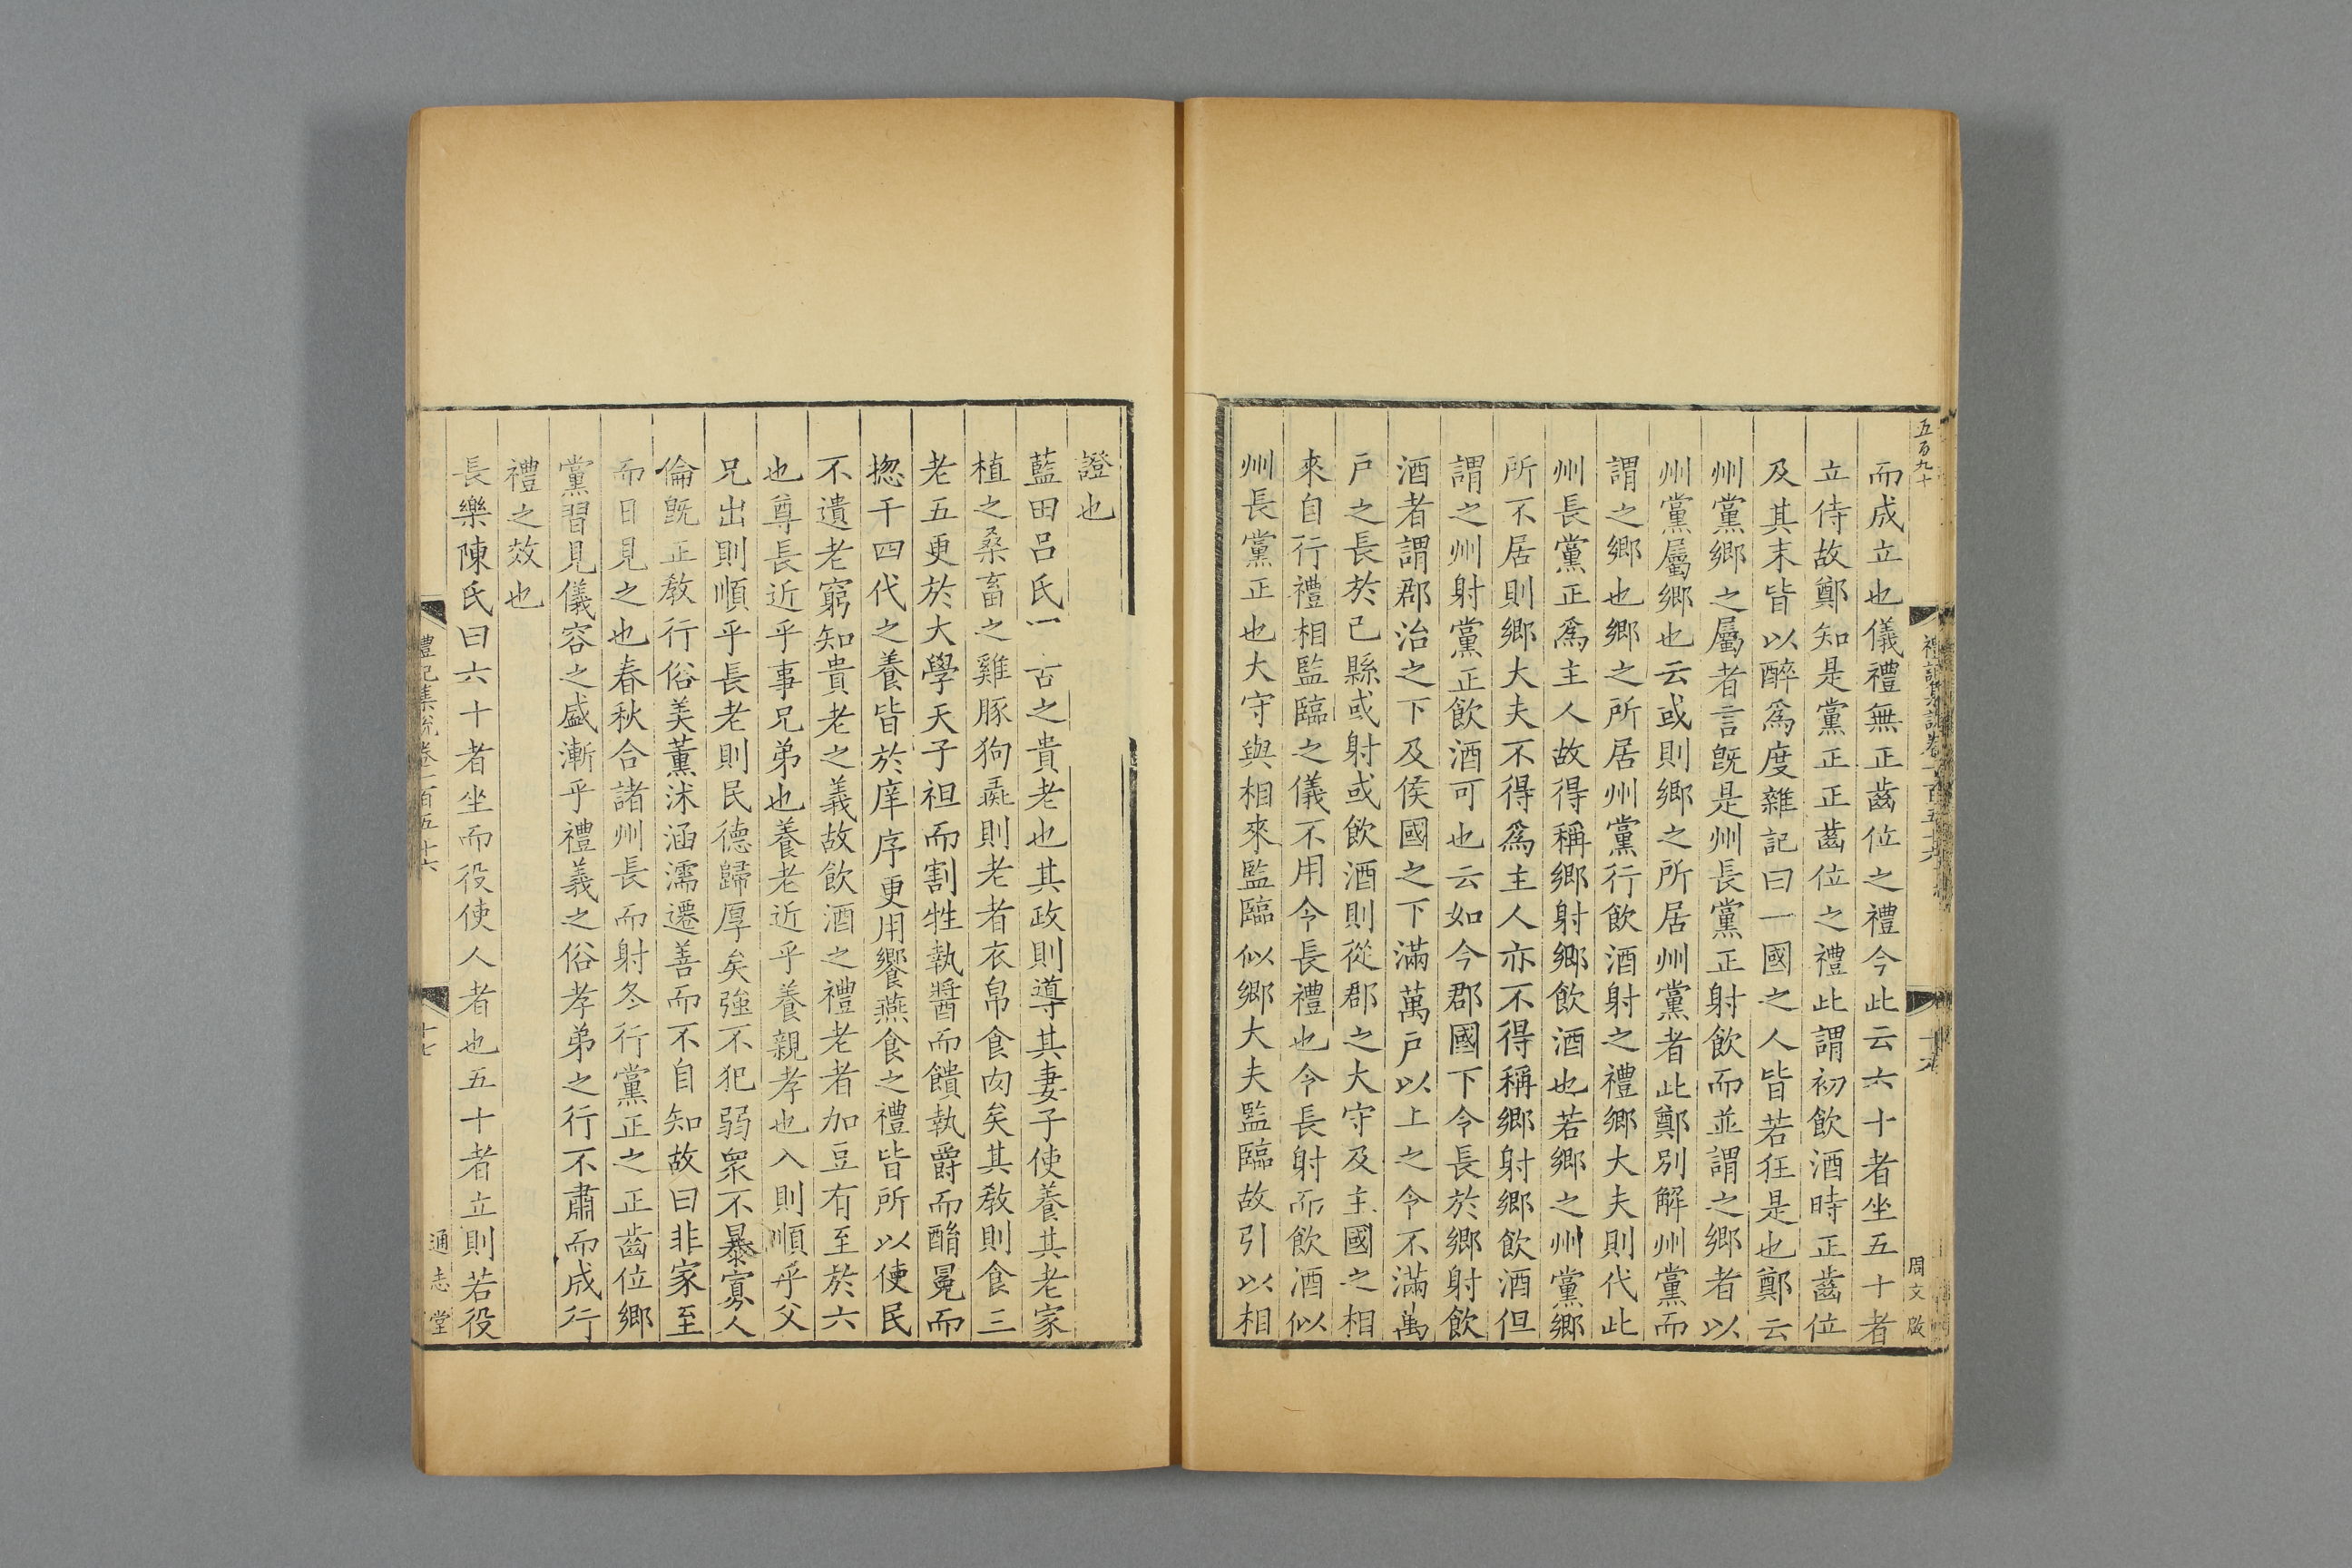 五百九十
而成立也儀禮無正齒位之禮今此云六十者坐五十者
立侍故鄭知是黨正正齒位之禮此謂初飲酒時正齒位
及其末皆以醉爲度雜記曰一國之人皆若狂是也鄭云
州黨鄉之屬者言旣是州長黨正射飲而並謂之鄉者以
州黨屬鄉也云或則鄉之所居州黨者此鄭別解州黨而
謂之鄉也鄉之所居州黨行飲酒射之禮鄉大夫則代此
州長黨正爲主人故得稱鄉射鄉飲酒也若鄉之州黨鄉
所不居則鄉大夫不得爲主人亦不得稱鄉射鄉飲酒但
謂之州射黨正飲酒可也云如今郡國下令長於鄉射飲
酒者謂郡治之下及侯國之下滿萬戶以上之令不滿萬
戶之長於己縣或射或飲酒則從郡之大守及主國之相
來自行禮相監臨之儀不用令長禮也令長射而飲酒似
州長黨正也大守與相來監臨似鄉大夫監臨故引以相
周文啟
證也
藍田呂氏曰古之貴老也其政則導其妻子使養其老家
植之桑畜之雞豚狗彘則老者衣帛食肉矣其教則食三
老五更於大學天子袒而割牲執醬而饋執爵而酳冕而
揔干四代之養皆於庠序更用饗燕食之禮皆所以使民
不遺老窮知貴老之義故飲酒之禮老者加豆有至於六
也尊長近乎事兄弟也養老近乎養親孝也入則順乎父
兄出則順乎長老則民德歸厚矣強不犯弱衆不暴寡人
倫旣正教行俗美薰沭涵濡遷善而不自知故曰非家至
而日見之也春秋合諸州長而射冬行黨正之正齒位鄉
黨習見儀容之盛漸乎禮義之俗孝弟之行不肅而成行
禮之效也
長樂陳氏曰六十者坐而役使人者也五十者立則若役
禮記集說卷一百五十六
十七
通志堂